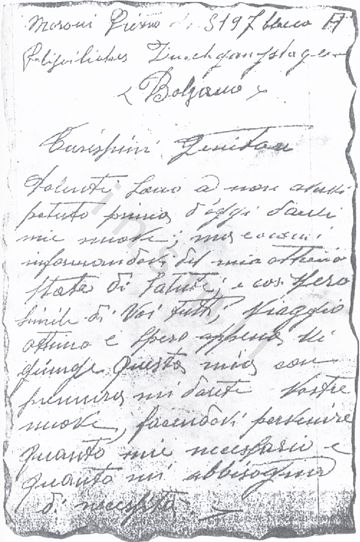 Moroni Pietro di 5197 blocco A
Polizeiliches Durchgangslager
Bolzano
Carissimi Genitori
Dolente sono a non avervi
potuto prima d'oggi darvi
mie nuove; ma eccomi
informandovi del mio ottimo
stato di salute, e così spero
simile di Voi tutti, viaggio
ottimo e spero appena vi
giunge questa mia con
premura mi darete vostre
nuove, facendovi pervenire
quanto mie necessario e
quanto mi abbisogna
di necessità